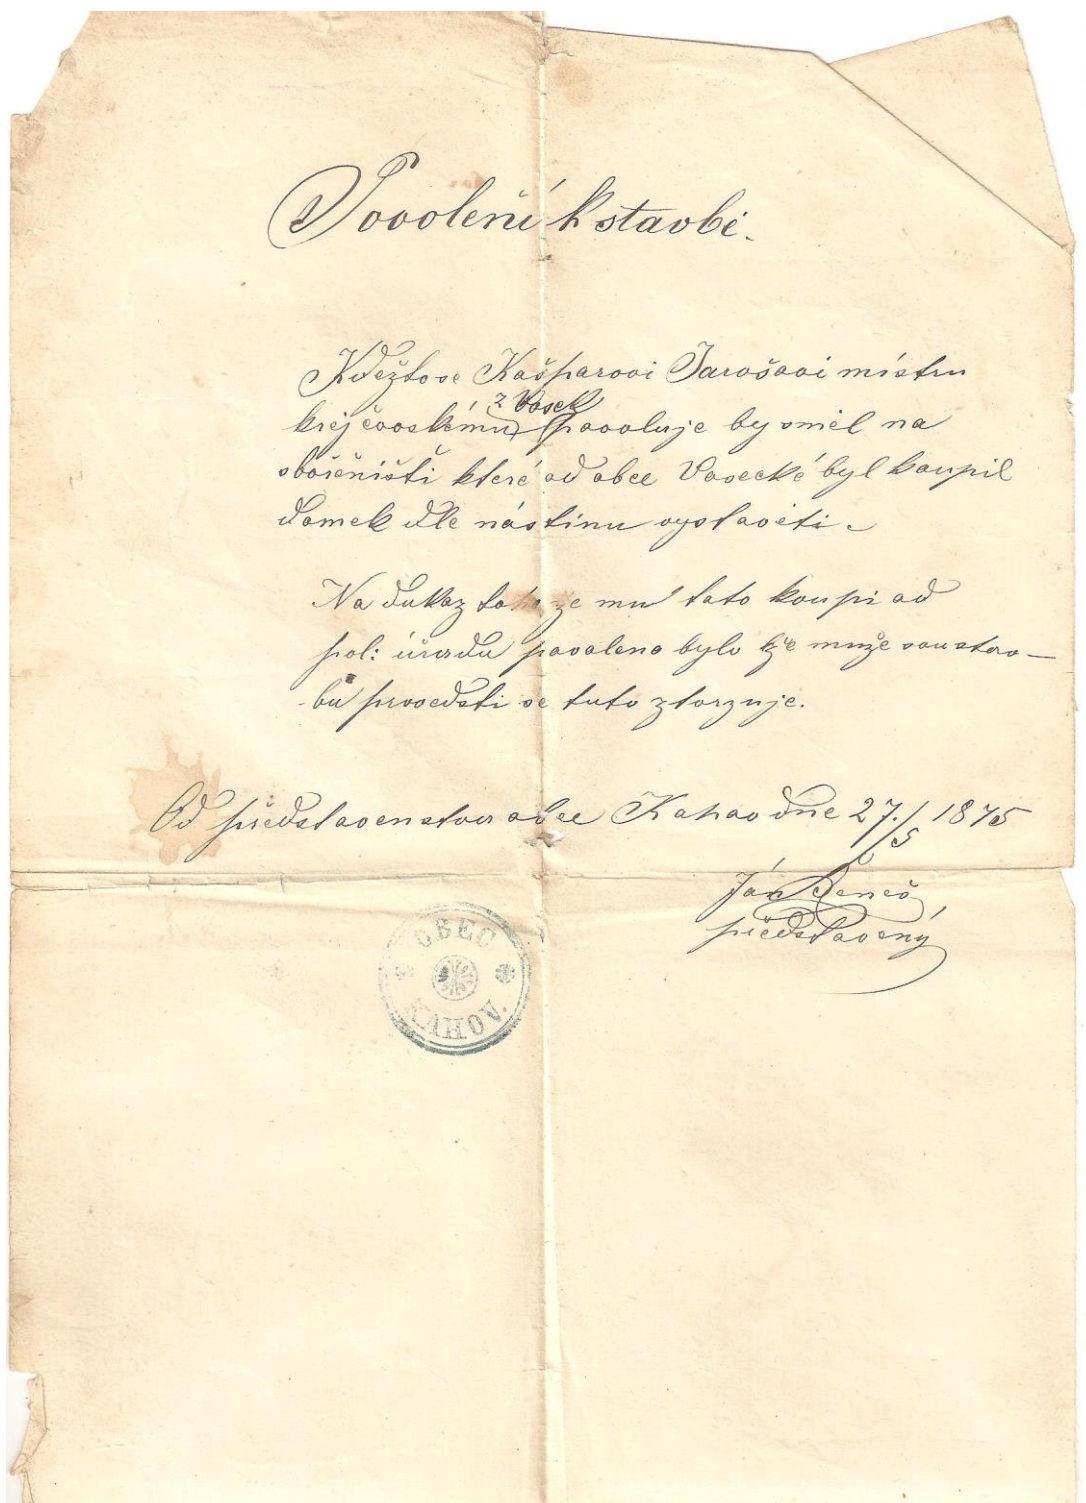 Povolení k stavbě.
Kdežto se Kašparovi Jarošovi mistru
z Vosek
krejčovskému povoluje by směl na
sbořeništi které od obce Vosecké byl koupil
domek dle nástinu vystavěti.
Na důkaz toho že mu tato koupi od
pol: úřadu povoleno bylo že může sou stav–
bu provedsti se tuto ztvrzuje.
Od představenstva obce Kahov dne 27./5 1875
Ján Beneš
představený
OBEC
KAHOV.